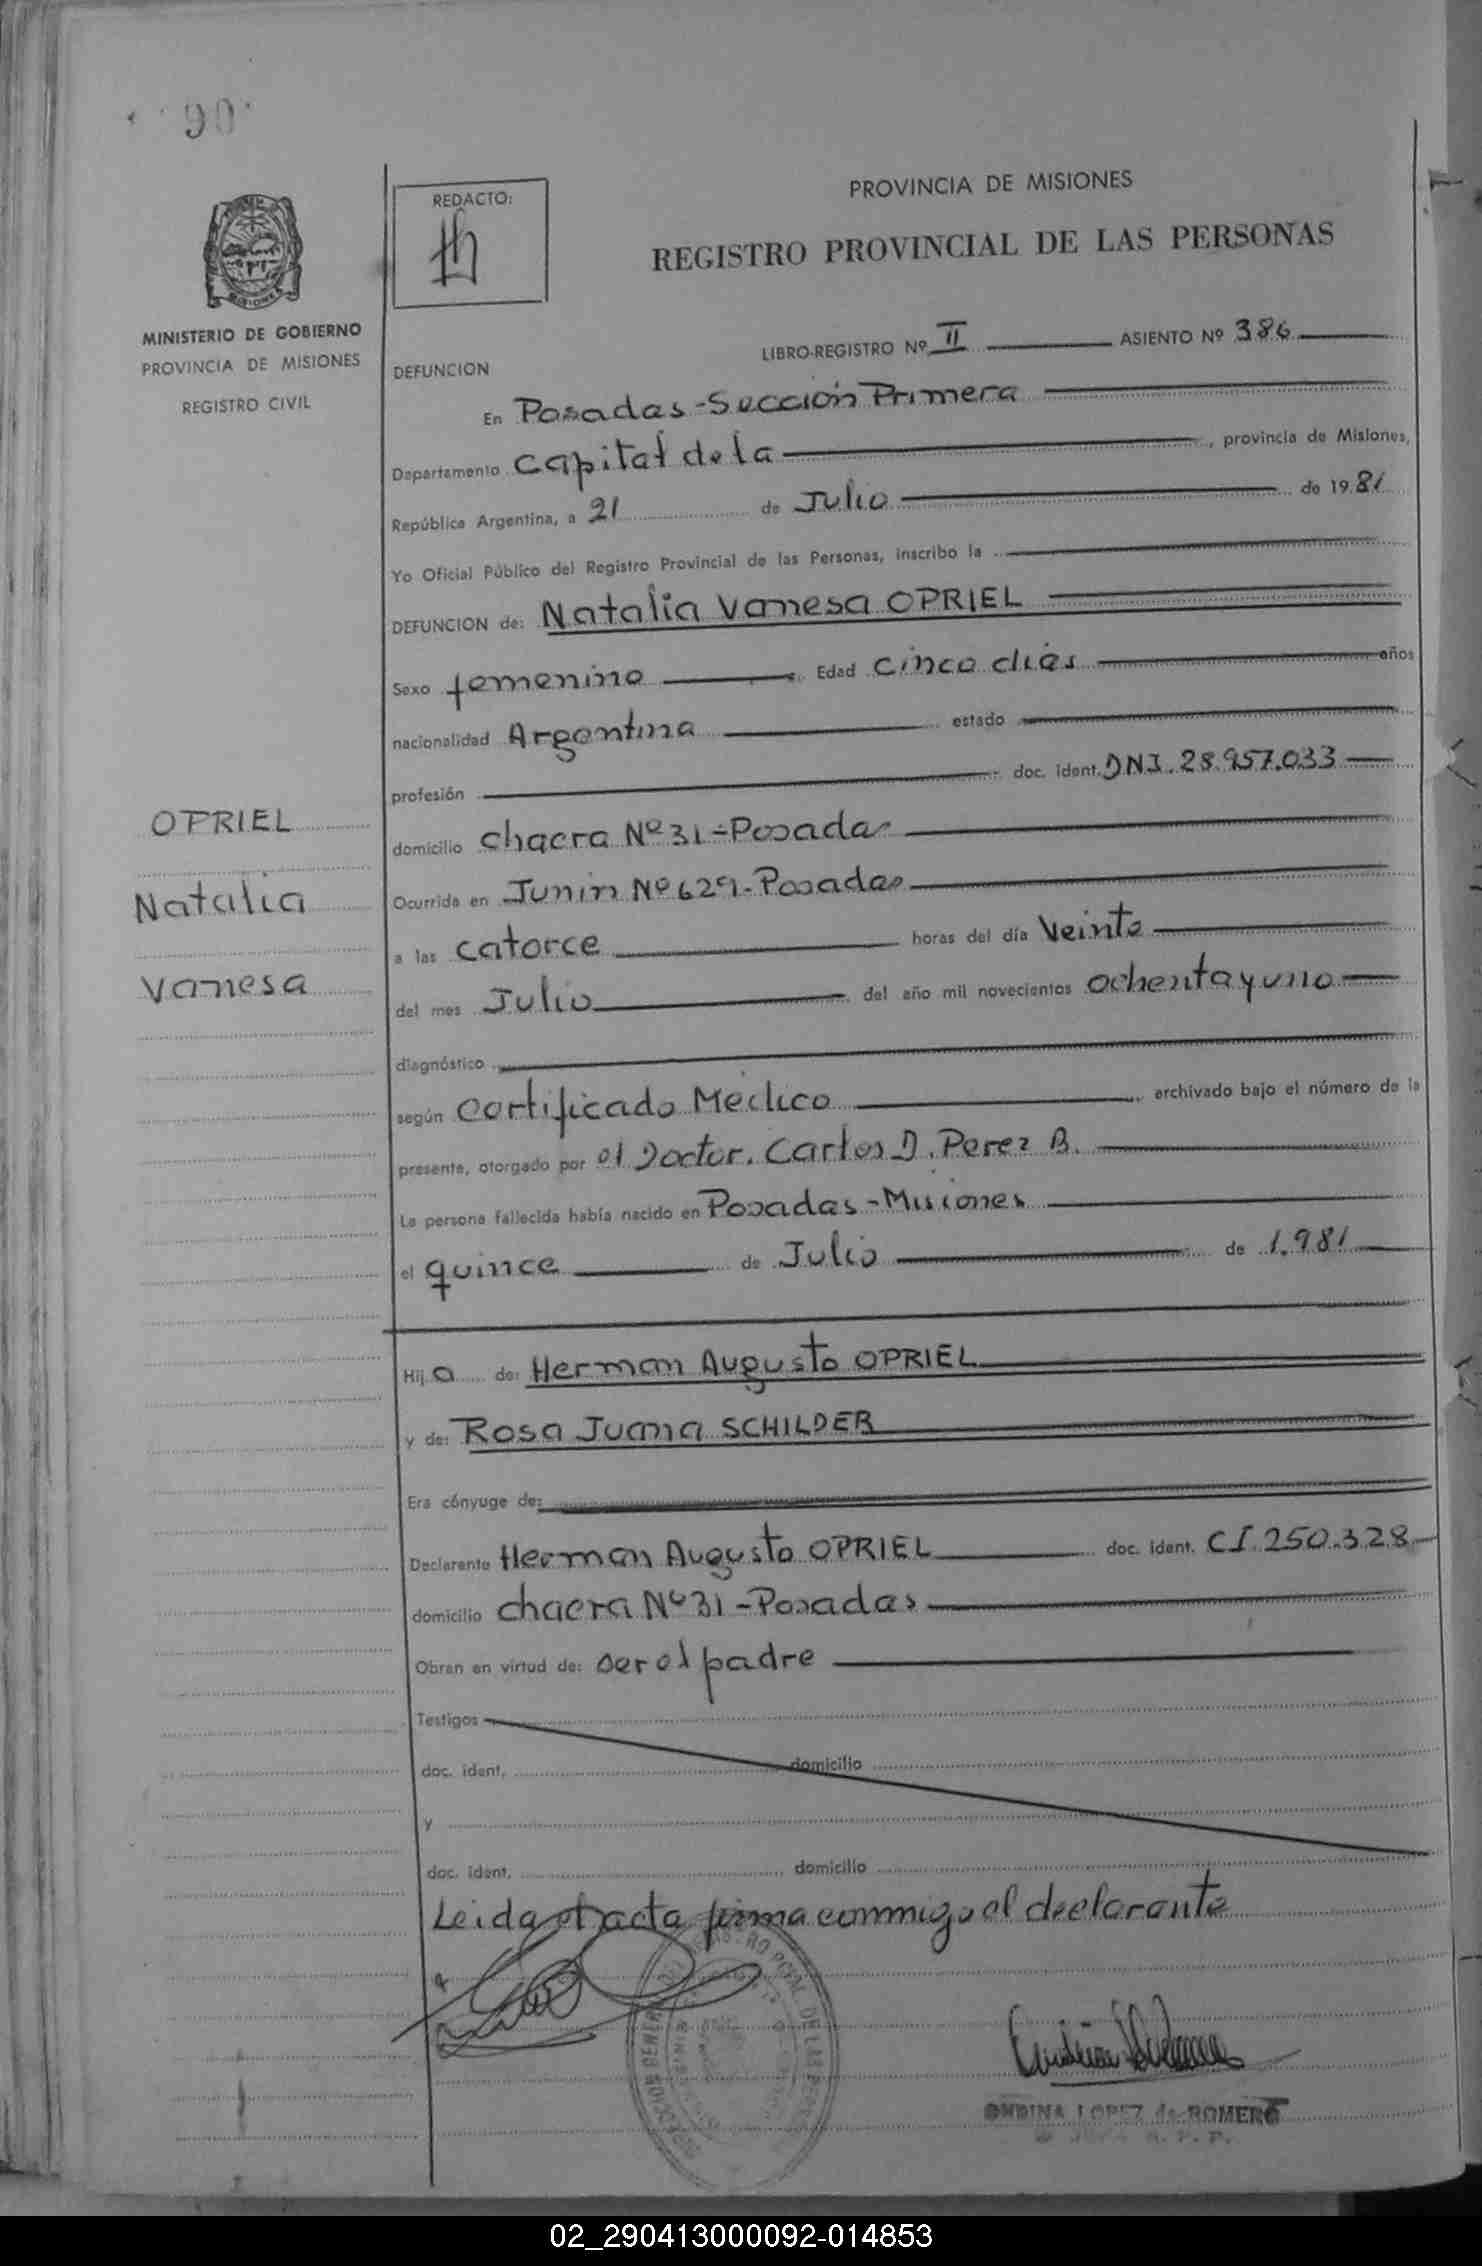 90
REDACTO:
PROVINCIA DE MISIONES
REGISTRO PROVINCIAL DE LAS PERSONAS
MISIONES
MINISTERIO DE GOBIERNO
PROVINCIA DE MISIONES
REGISTRO CIVIL
LIBRO-REGISTRO Nº II ASIENTO Nº 386
DEFUNCION
En Posadas-Sección Primera
Departamento Capital de la, provincia de Misiones,
República Argentina, a 21 de Julio de 1981
Yo Oficial Público del Registro Provincial de las Personas, inscribo la
DEFUNCION de: Natalia Vanesa OPRIEL
Sexo femenino Edad cinco días años
nacionalidad Argentina estado
profesión doc. ident. DNI. 28.957.033
OPRIEL
Natalia
Vanesa
domicilio chacra Nº 31-Posadas
Ocurrida en Junín Nº 629-Posadas
a las catorce horas del día Veinte
del mes Julio del año mil novecientos ochenta y uno
diagnóstico
según Certificado Médico archivado bajo el número de la
presente, otorgado por el Doctor. Carlos D. Perez B.
La persona fallecida había nacido en Posadas-Misiones
el quince de Julio de 1.981
Hija de: Herman Augusto OPRIEL
y de: Rosa Juana SCHILDER
Era cónyuge de:
Declarante Herman Augusto OPRIEL doc. ident. CI.250.328
domicilio chacra Nº 31-Posadas
Obran en virtud de: ser el padre
Testigos
doc. ident. domicilio
y
doc. ident. domicilio
Leida el acta firma conmigo el declarante
ONDINA LOPEZ de ROMERO
02_290413000092-014853